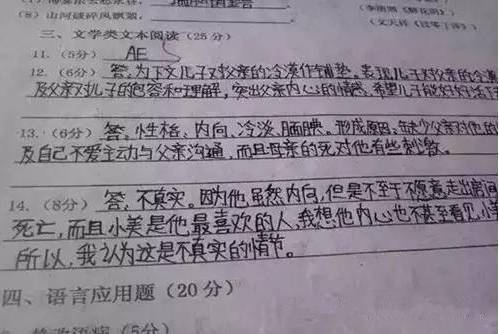 (8) 山河破碎风飘絮，
(文天祥《过零丁洋》)
三、文学类文本阅读(25分)
11. (5分) AE
12. (6分) 答，为下文儿子对父亲的冷漠作铺垫。表现儿子对父亲的冷
及父亲对儿子的包容和理解，突出父亲内心的情感，希望儿子能好好
13. (6分) 答，性格、内向、冷淡、腼腆。形成原因：缺少父亲对他的
及自己不爱主动与父亲沟通，而且母亲的死对他有些刺激。
14. (8分) 答，不真实。因为他虽然内向，但是不至于不愿意走出房间
死亡，而且小美是他最喜欢的人，我想他内心也不甚至看见小美
所以，我认为这是不真实的情节。
四、语言应用题(20分)